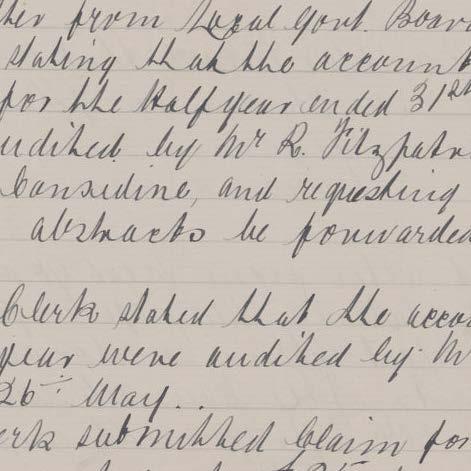 ther from Local Govt. Board
stating that the account
for the Half year ended 31st
udited by Mr R. Fitzpatri
Considine, and requesting
abstracts be forwarded
Clerk stated that the accou
year were audited by M
26th May..
erk submitted Claim for